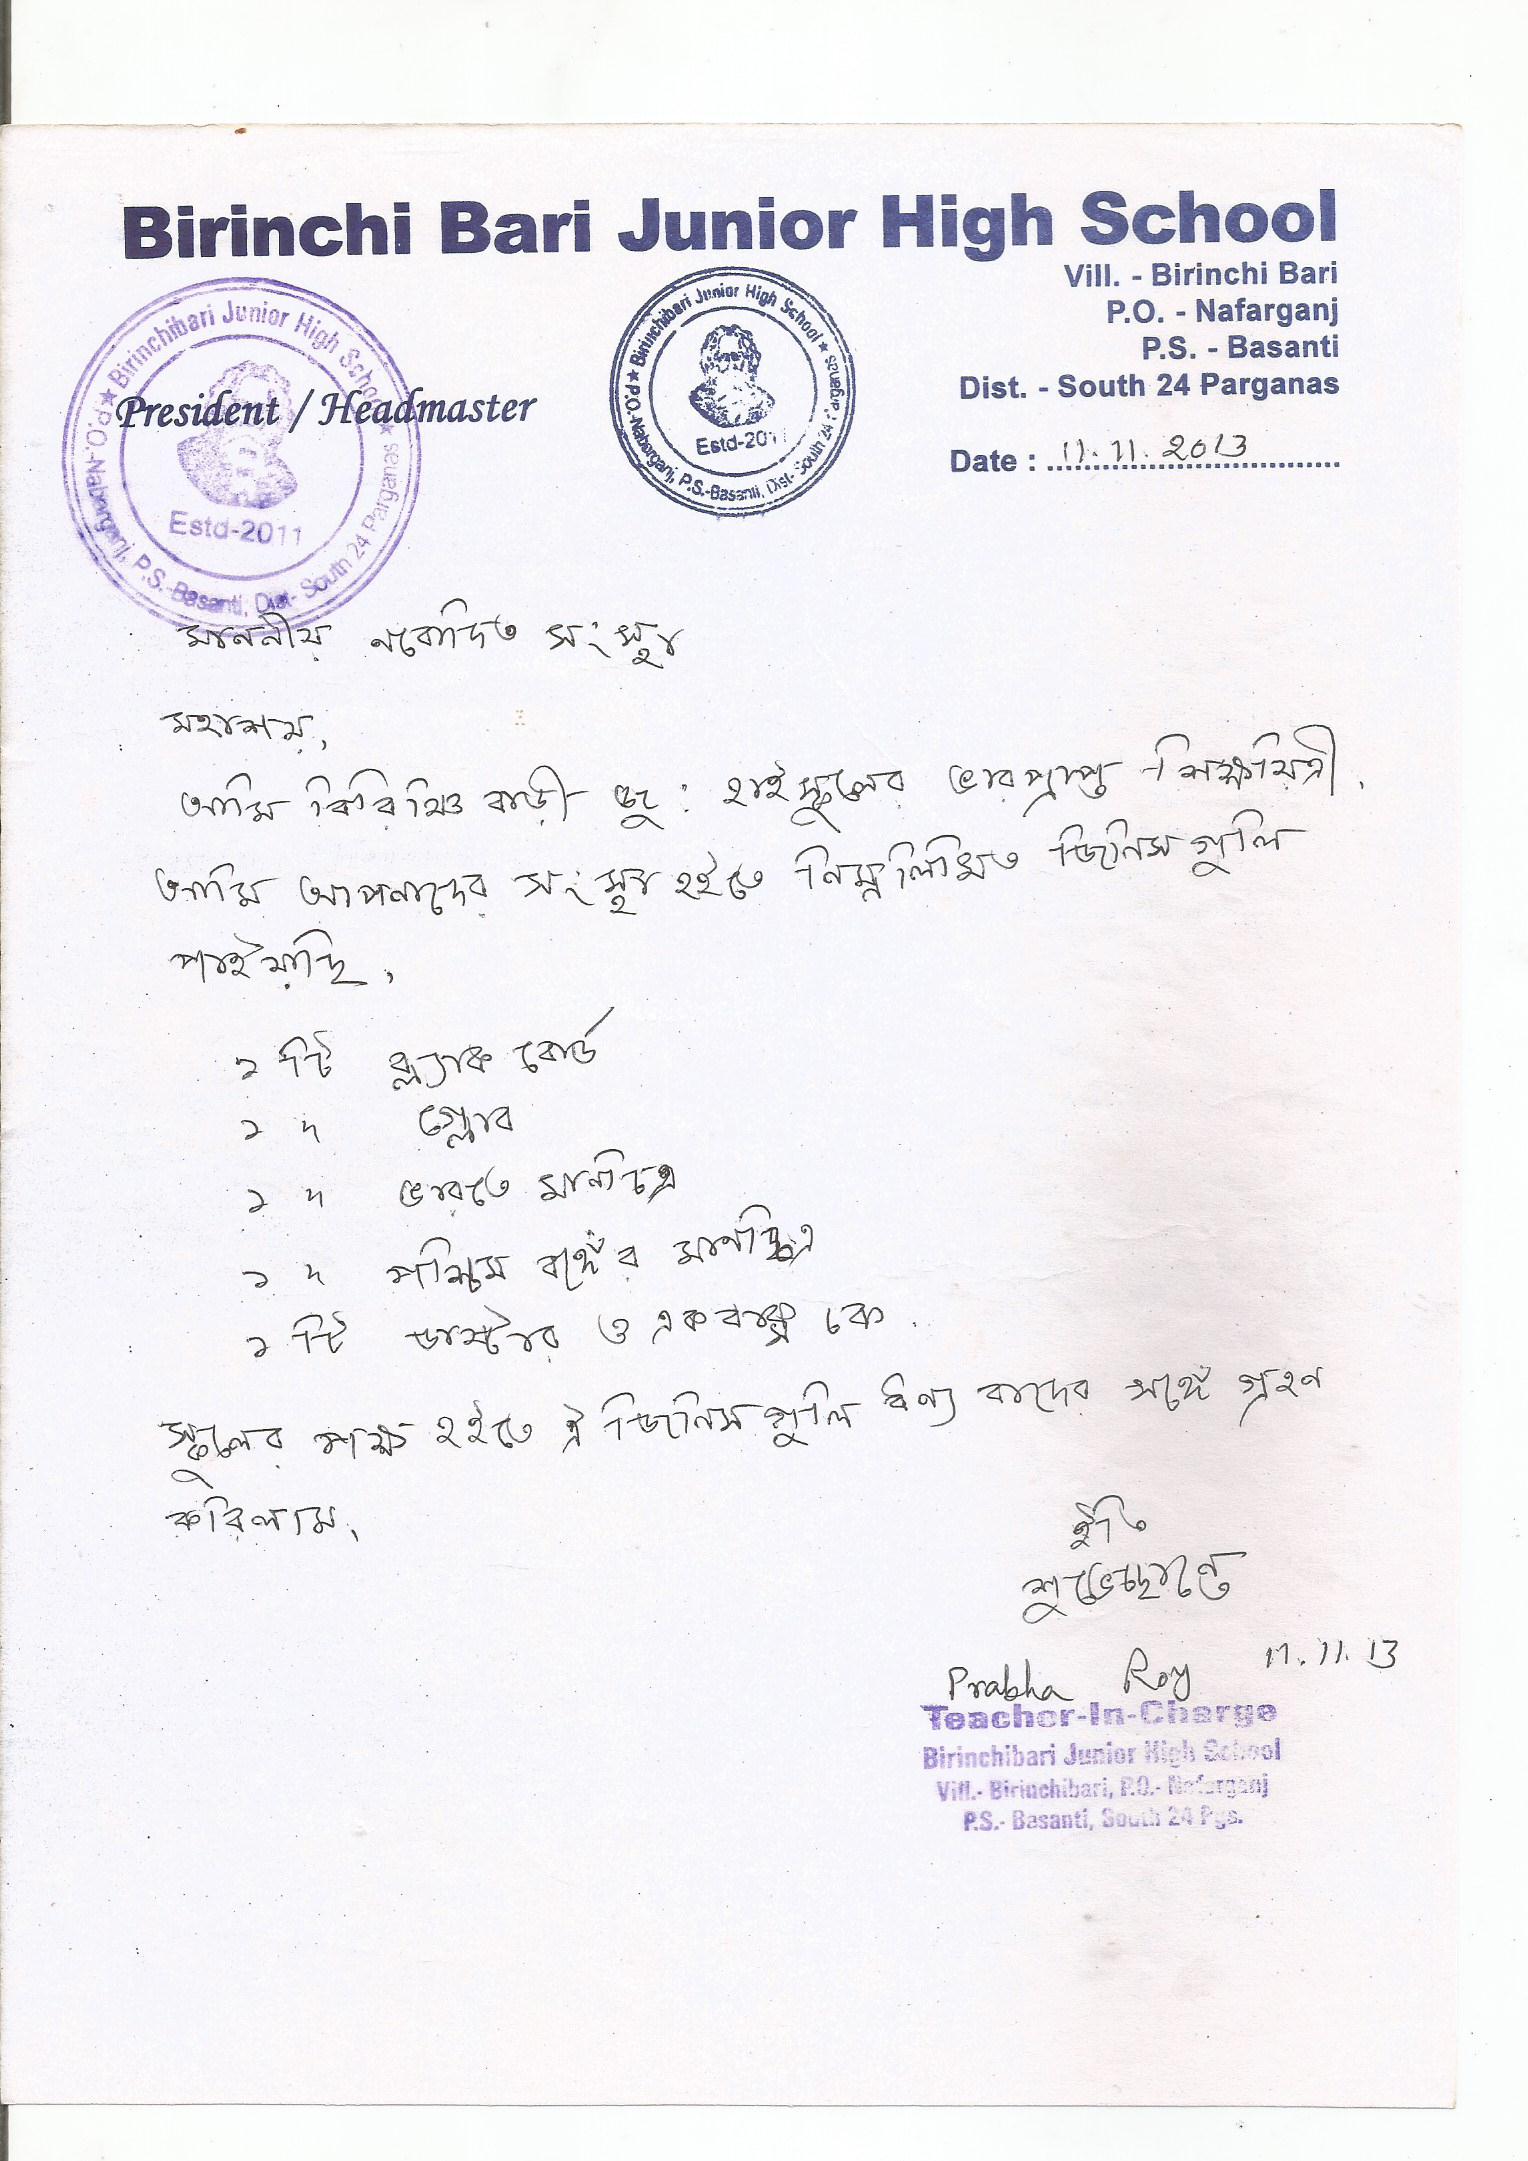 Birinchi Bari Junior High School
Vill. - Birinchi Bari
P.O. - Nafarganj
P.S. - Basanti
Dist. - South 24 Parganas
President / Headmaster
Date : 11.11.2013
★ Birinchibari Junior High School ★
P.O.-Nabarganj, P.S.-Basanti, Dist- South 24 Parganas
Estd-2011
★ Birinchibari Junior High School ★
P.O.-Nabarganj, P.S.-Basanti, Dist- South 24 Parganas
Estd-2011
মাননীয় নবোদিত সংস্থা
মহাশয়,
আমি বিরিঞ্চি বাড়ী জু: হাইস্কুলের ভারপ্রাপ্ত শিক্ষয়িত্রী.
আমি আপনাদের সংস্থা হইতে নিম্নলিখিত জিনিসগুলি
পাইয়াছি,
১ টি ব্ল্যাক বোর্ড
১ " গ্লোব
১ " ভারতে মানচিত্র
১ " পশ্চিম বঙ্গের মানচিত্র
১ টি ডাস্টার ও একবাক্স
স্কুলের পক্ষ হইতে ঐ জিনিসগুলি ধন্য বাদের সঙ্গে গ্রহণ
করিলাম,
ইতি
শুভেচ্ছান্তে
Prabha Roy 11.11.13
Teacher-In-Charge
Birinchibari Junior High School
Vill.- Birinchibari, P.O.- Nafarganj
P.S.- Basanti, South 24 Pgs.